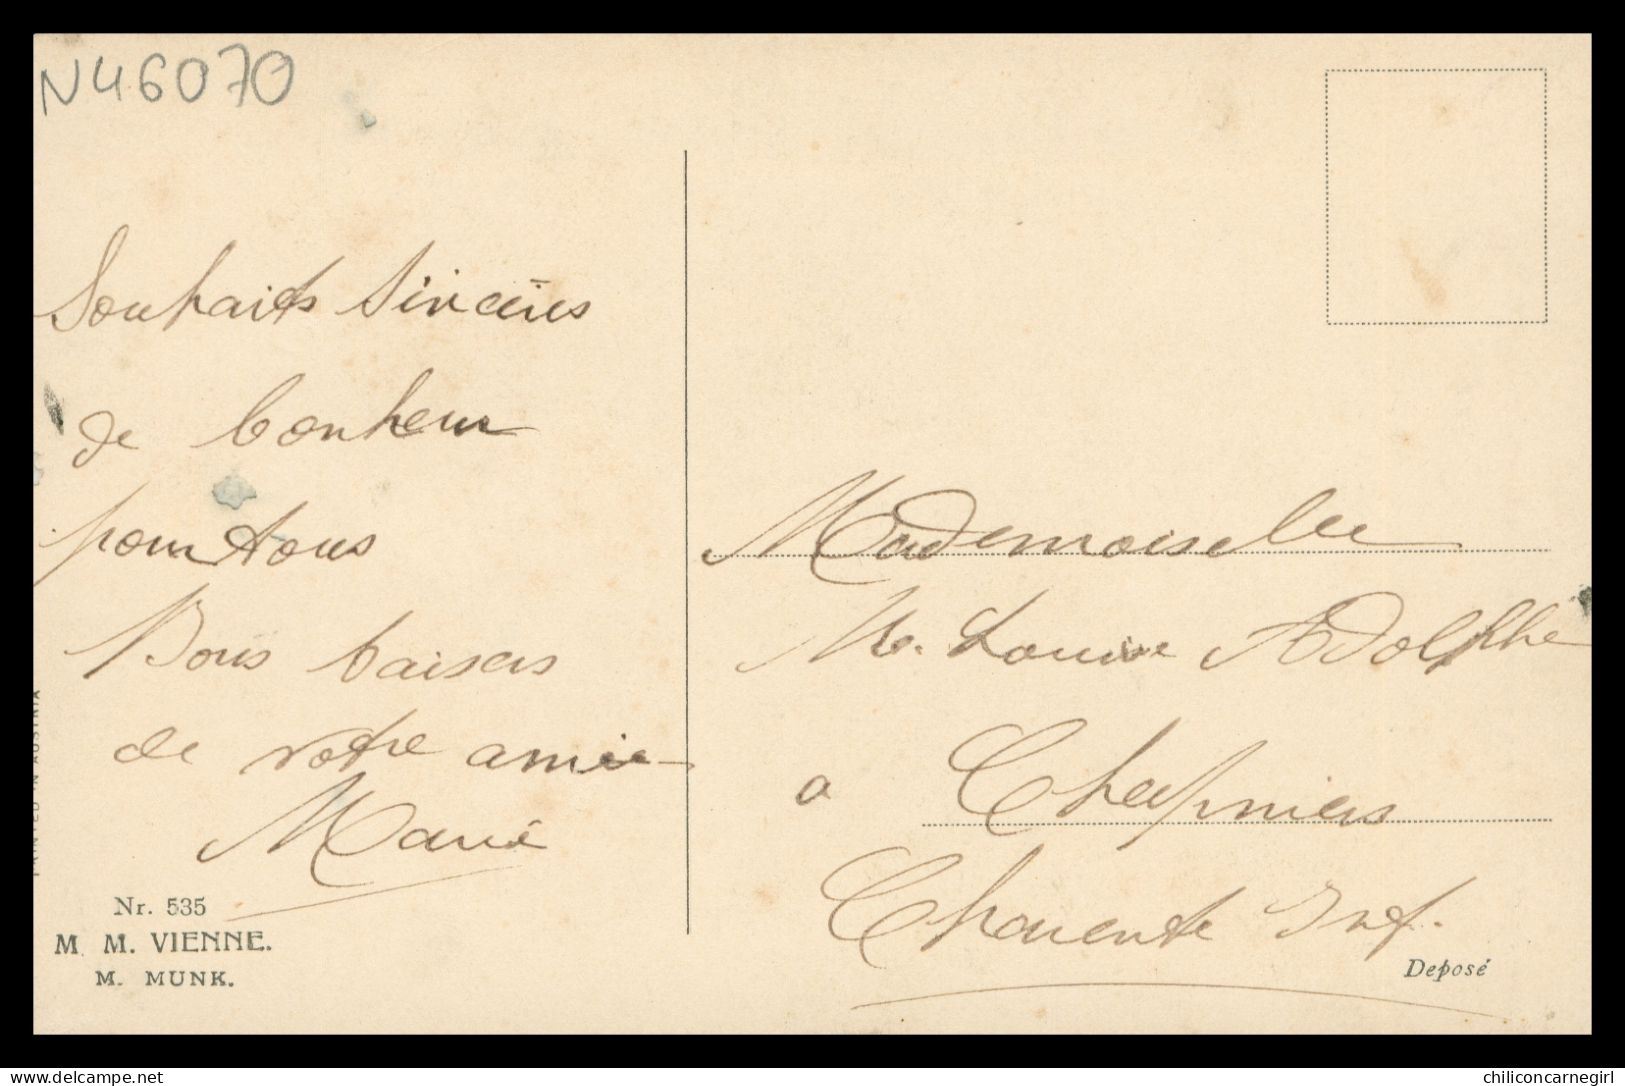 N46070
Souhaits sincères
de bonheur
pour tous
Bons baisers
de votre amie
Marie
PRINTED IN AUSTRIA
Nr. 535
M. M. VIENNE.
M. MUNK.
Mademoiselle
M. Louise Adolphe
a Chepniers
Charente Inf.
Deposé
delcampe.net
chiliconcarnegirl